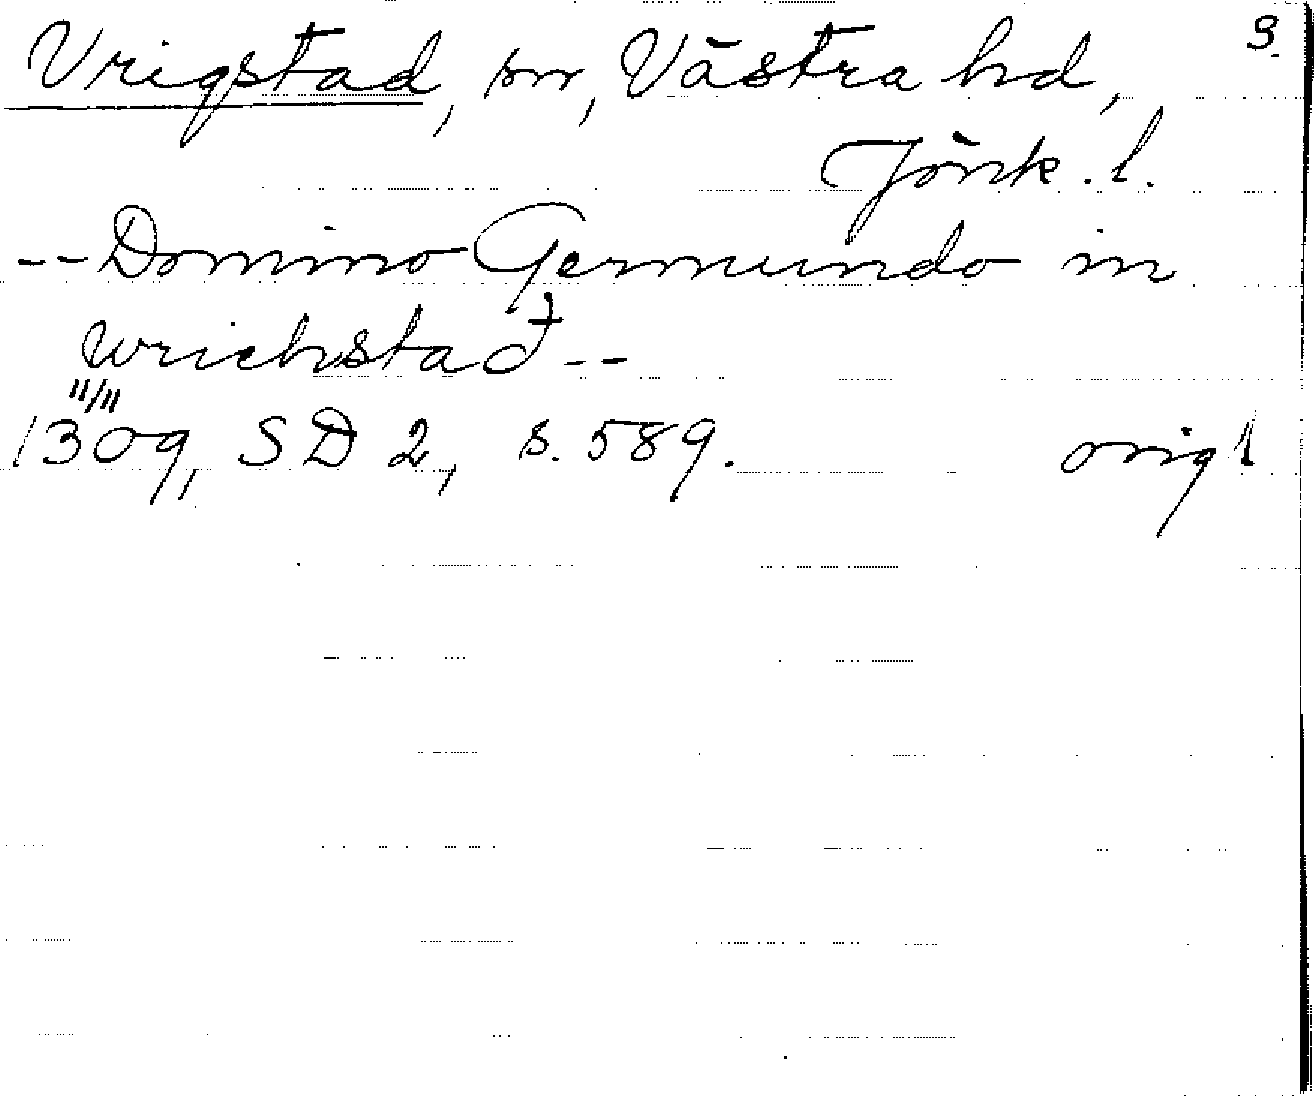 3.
Vrigstad, sn, Västra hd,
Jönk. l.
-- Domino Germundo in
wrichstađ --
11/11
1309, SD 2, s. 589. orig l